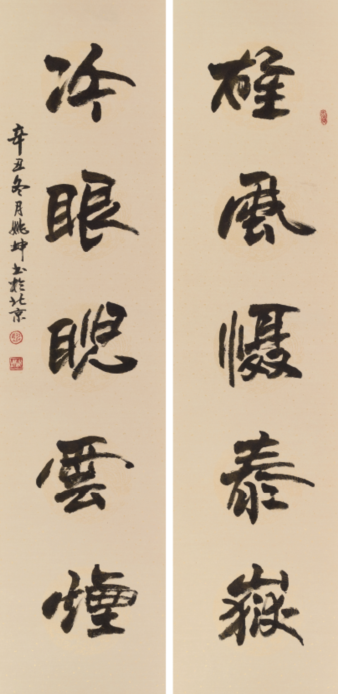 雄風慑泰嶽
冷眼睨雲煙
辛丑冬月姚坤书於北京